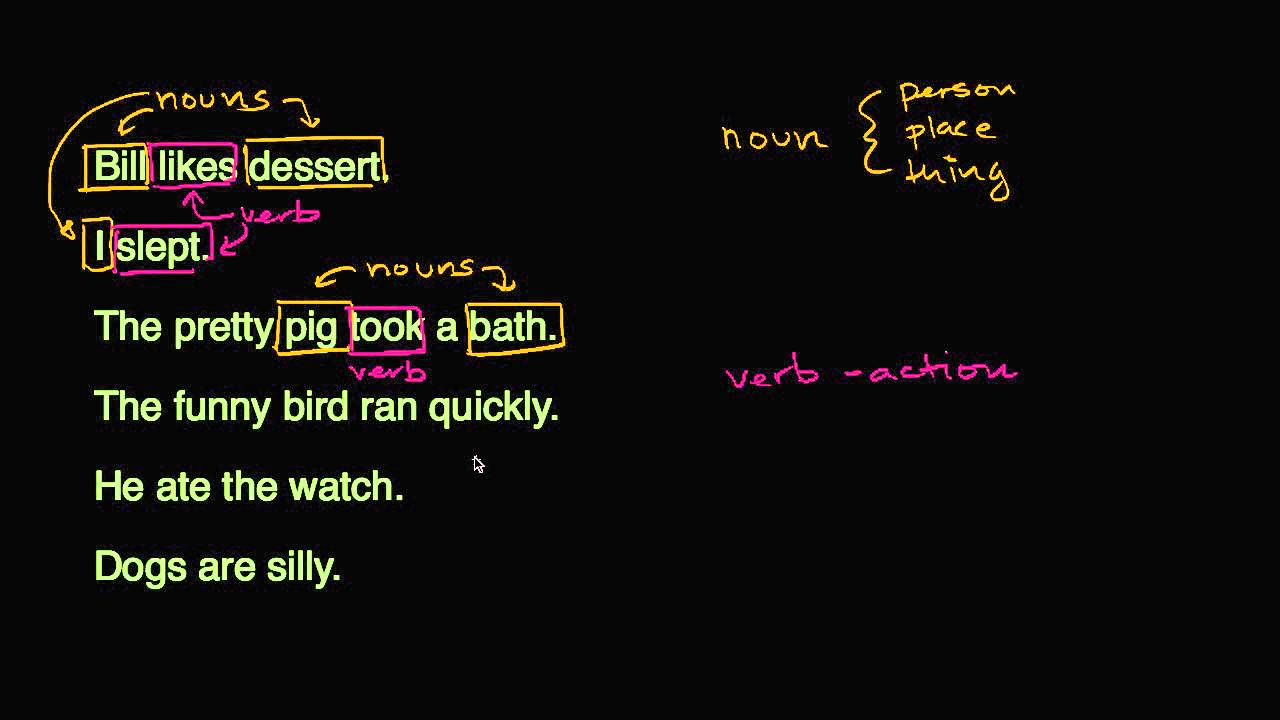 nouns
Bill likes dessert.
verb
I slept.
nouns
The pretty pig took a bath.
verb
The funny bird ran quickly.
He ate the watch.
Dogs are silly.
noun
person
place
thing
verb - action